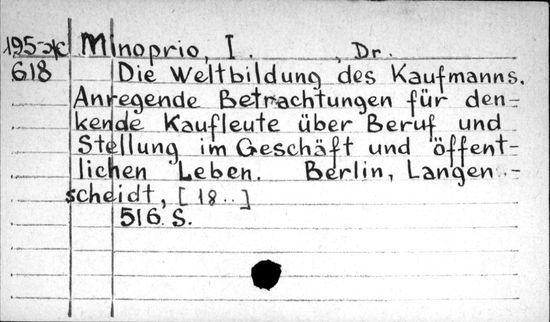 195-ж Minoprio, I. , Dr.
618 Die Weltbildung des Kaufmanns.
Anregende Betrachtungen für den-
kende Kaufleute über Beruf und
Stellung im Geschäft und öffent-
lichen Leben. Berlin, Langen-
scheidt, [18..]
516 S.